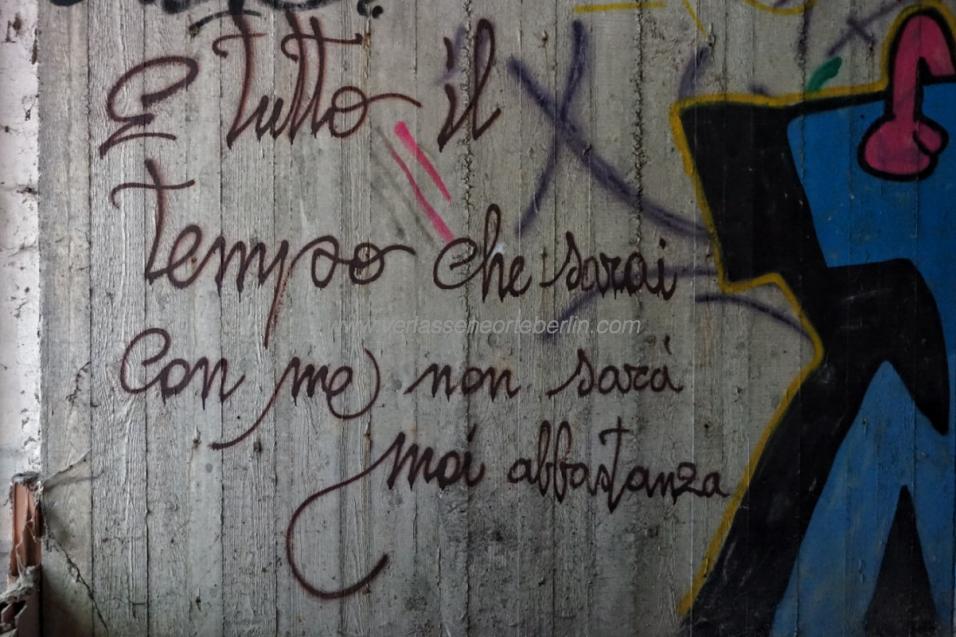 E tutto il
tempo che sarai
con me non sarà
mai abbastanza
www.verlasseneorteberlin.com